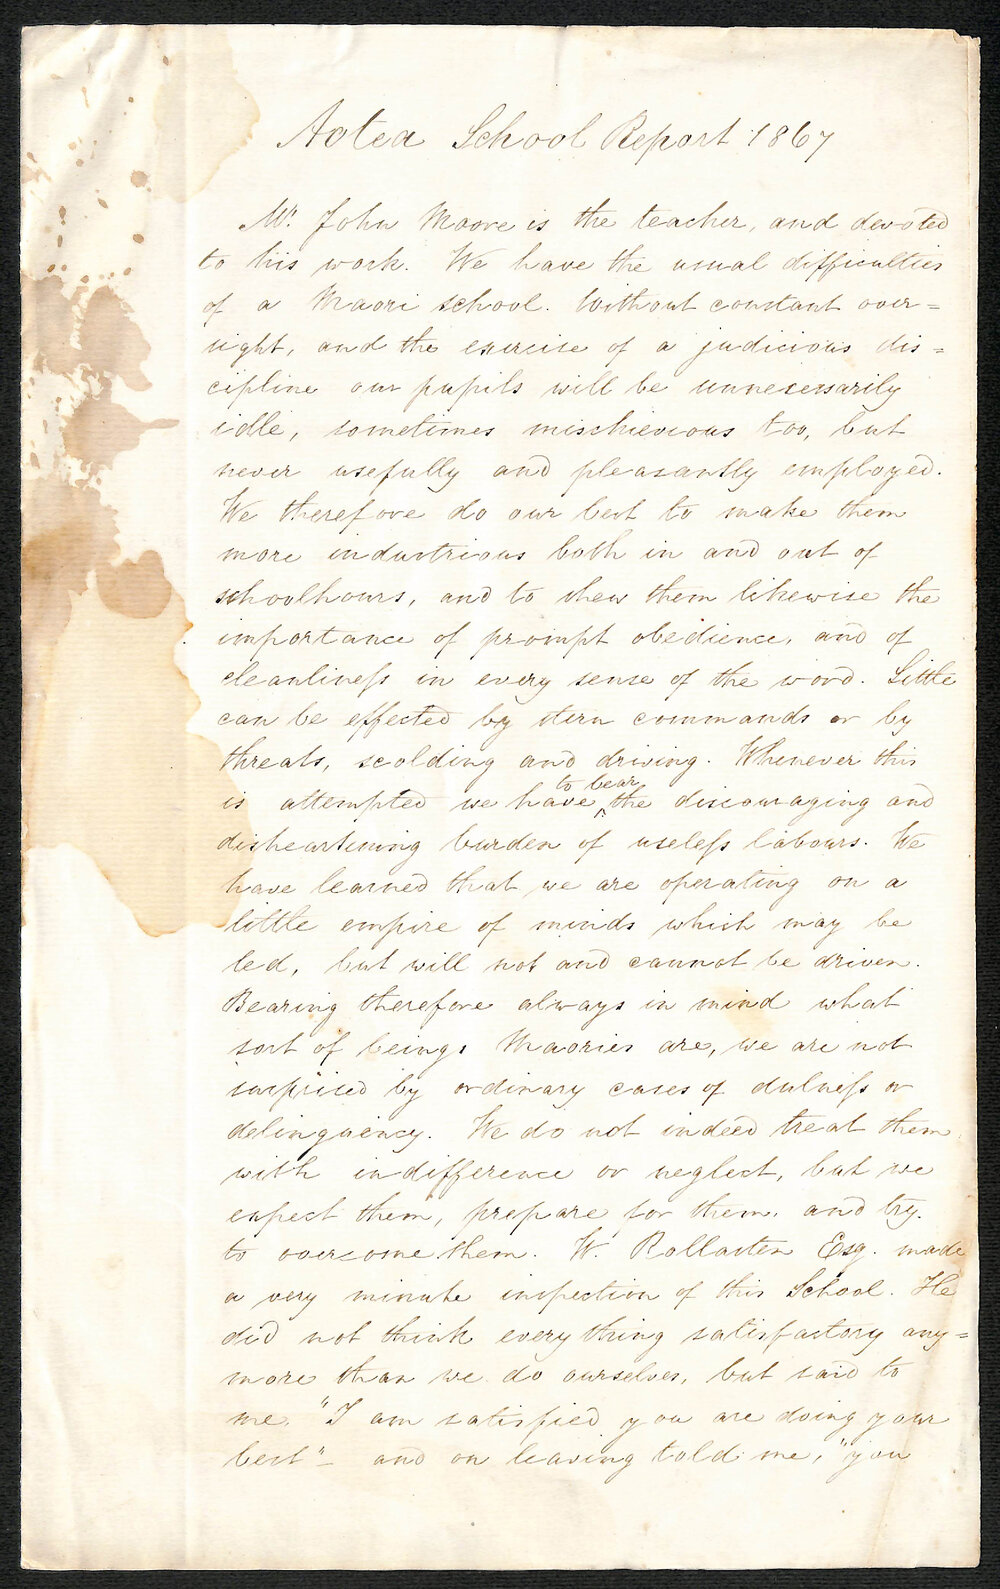 Aotea School Report 1867
Mr. John Moore is the teacher, and devoted
to his work. We have the usual difficulties
of a Maori school. Without constant over=
sight, and the exercise of a judicious dis=
cipline our pupils will be unnecessarily
idle, sometimes mischievious too, but
never usefully and pleasantly employed.
We therefore do our best to make them
more industrious both in and out of
schoolhours, and to shew them likewise the
importance of prompt obedience, and of
cleanliness in every sense of the word. Little
can be effected by stern commands or by
threats, scolding and driving. Whenever this
to bear
is attempted we have ^ the discouraging and
disheartening burden of useless labours. We
have learned that we are operating on a
little empire of minds which may be
led, but will not and cannot be driven.
Bearing therefore always in mind what
sort of beings Maories are, we are not
surprised by ordinary cases of dulness or
delinquency. We do not indeed treat them
with indifference or neglect, but we
expect them, prepare for them, and try
to overcome them. W. Rollasten Esq. made
a very minute inspection of this School. He
did not think every thing satisfactory any=
more than we do ourselves, but said to
me, "I am satisfied you are doing your
best" – and on leaving told me, "you